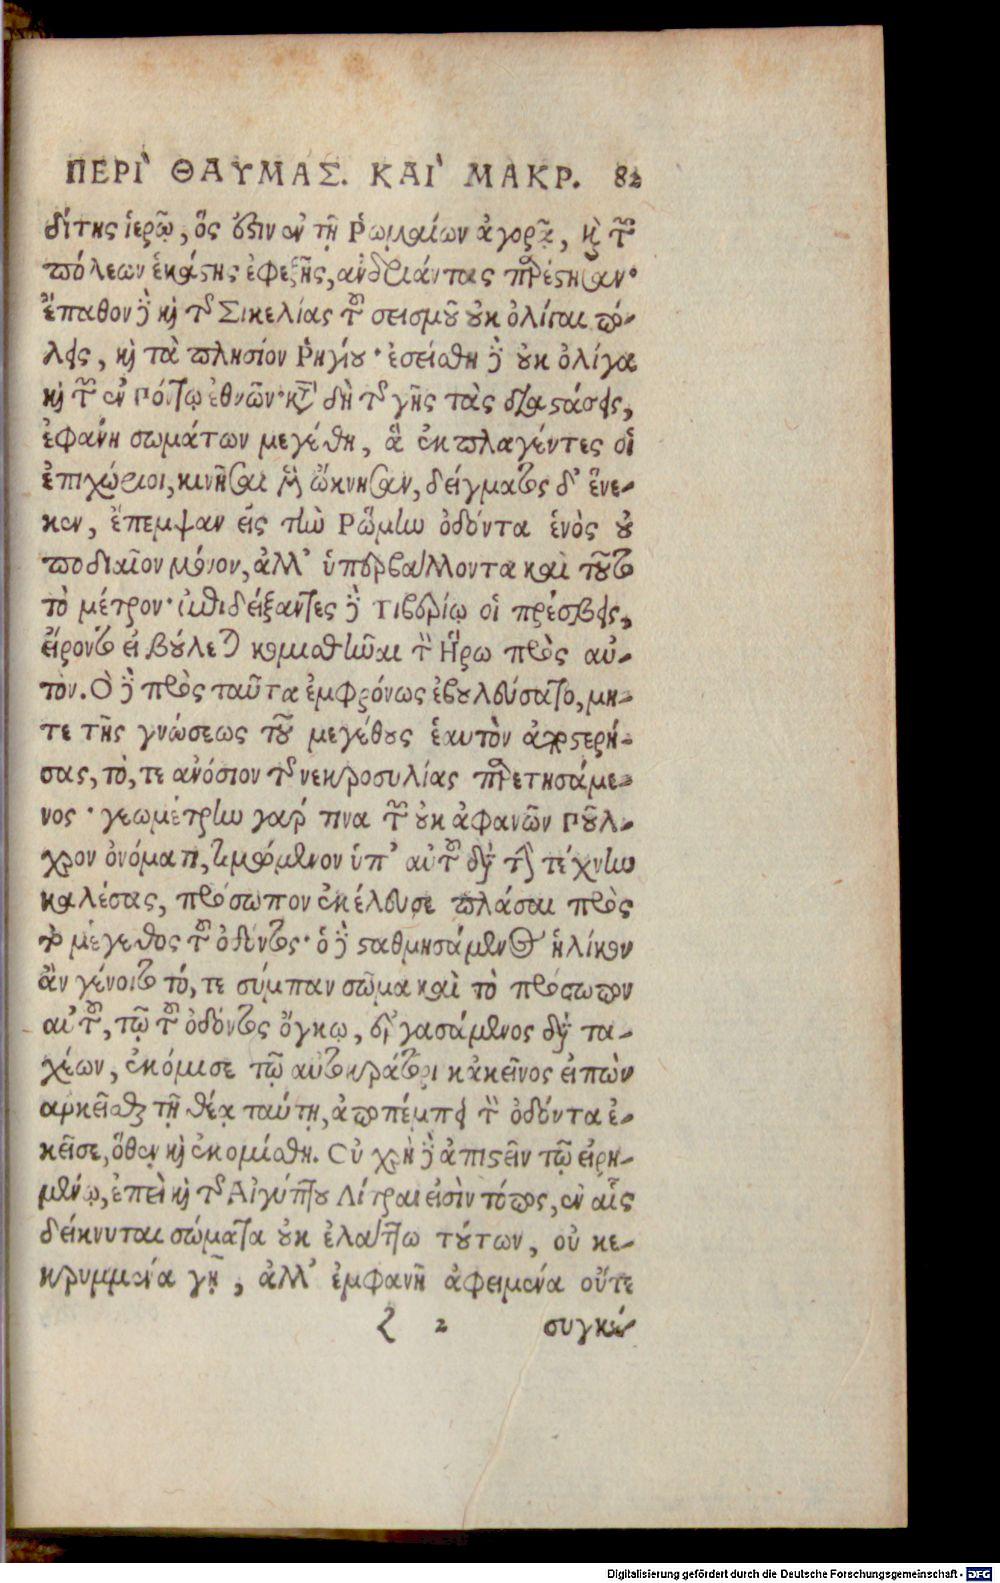 ΠΕΡΙ` ΘΑΥΜΑΣ. ΚΑΙ` ΜΑΚΡ. 82
δίτης ἱερῷ, ὅς ἐστιν ἐν τῇ Ῥωμαίων ἀγορᾷ, καὶ τῶν
πόλεων ἑκάστης ἐφεξῆς, ἀνδριάντας παρέστησαν·
ἔπαθον δὲ καὶ τῆς Σικελίας τοῦ σεισμοῦ οὐκ ὀλίγαι πό-
λεις, καὶ τὰ πλησίον Ῥηγίου· ἐσείσθη δὲ οὐκ ὀλίγα
καὶ τῶν ἐν Πόντῳ ἐθνῶν· κατὰ δὴ τῆς γῆς τὰς διαστάσεις,
ἐφάνη σωμάτων μεγέθη, ἃ ἐκπλαγέντες οἱ
ἐπιχώριοι, κινῆσαι μὲν ὤκνησαν, δείγματος δ' ἕνε-
κεν, ἔπεμψαν εἰς τὴν Ῥώμην ὀδόντα ἑνὸς οὐ
ποδιαῖον μόνον, ἀλλ' ὑπερβάλλοντα καὶ τοῦτο
τὸ μέτρον· ἐπιδείξαντες δὲ Τιβερίῳ οἱ πρέσβεις,
εἴροντο εἰ βούλεται κομισθῆναι τὸν Ἥρω πρὸς αὐ-
τόν. Ὁ δὲ πρὸς ταῦτα ἐμφρόνως ἐβουλεύσατο, μή-
τε τῆς γνώσεως τοῦ μεγέθους ἑαυτὸν ἀποστερή-
σας, τό, τε ἀνόσιον τῆς νεκροσυλίας παραιτησάμε-
νος· γεωμέτρην γάρ τινα τῶν οὐκ ἀφανῶν Ποῦλ-
χρον ὀνόματι, τιμώμενον ὑπ' αὐτοῦ διὰ τὴν τέχνην
καλέσας, πρόσωπον ἐκέλευσε πλάσαι πρὸς
τὸ μέγεθος τοῦ ὀδόντος· ὁ δὲ σταθμησάμενος ἡλίκον
ἂν γένοιτο τό, τε σύμπαν σῶμα καὶ τὸ πρόσωπον
αὐτοῦ, τῷ τοῦ ὀδόντος ὄγκῳ, ἐργασάμενος διὰ τα-
χέων, ἐκόμισε τῷ αὐτοκράτορι κἀκεῖνος εἰπὼν
ἀρκεῖσθαι τῇ θέᾳ ταύτῃ, ἀποπέμπει τὸν ὀδόντα ἐ-
κεῖσε, ὅθεν καὶ ἐκομίσθη. Οὐ χρὴ δὲ ἀπιστεῖν τῷ εἰρη-
μένῳ, ἐπεὶ καὶ τῆς Αἰγύπτου Λίτραι εἰσὶν τόπος, ἐν αἷς
δείκνυται σώματα οὐκ ἐλάττω τούτων, οὐ κε-
κρυμμένα γῇ, ἀλλ' ἐμφανῆ ἀφειμένα οὔτε
ζ 2 συγκε